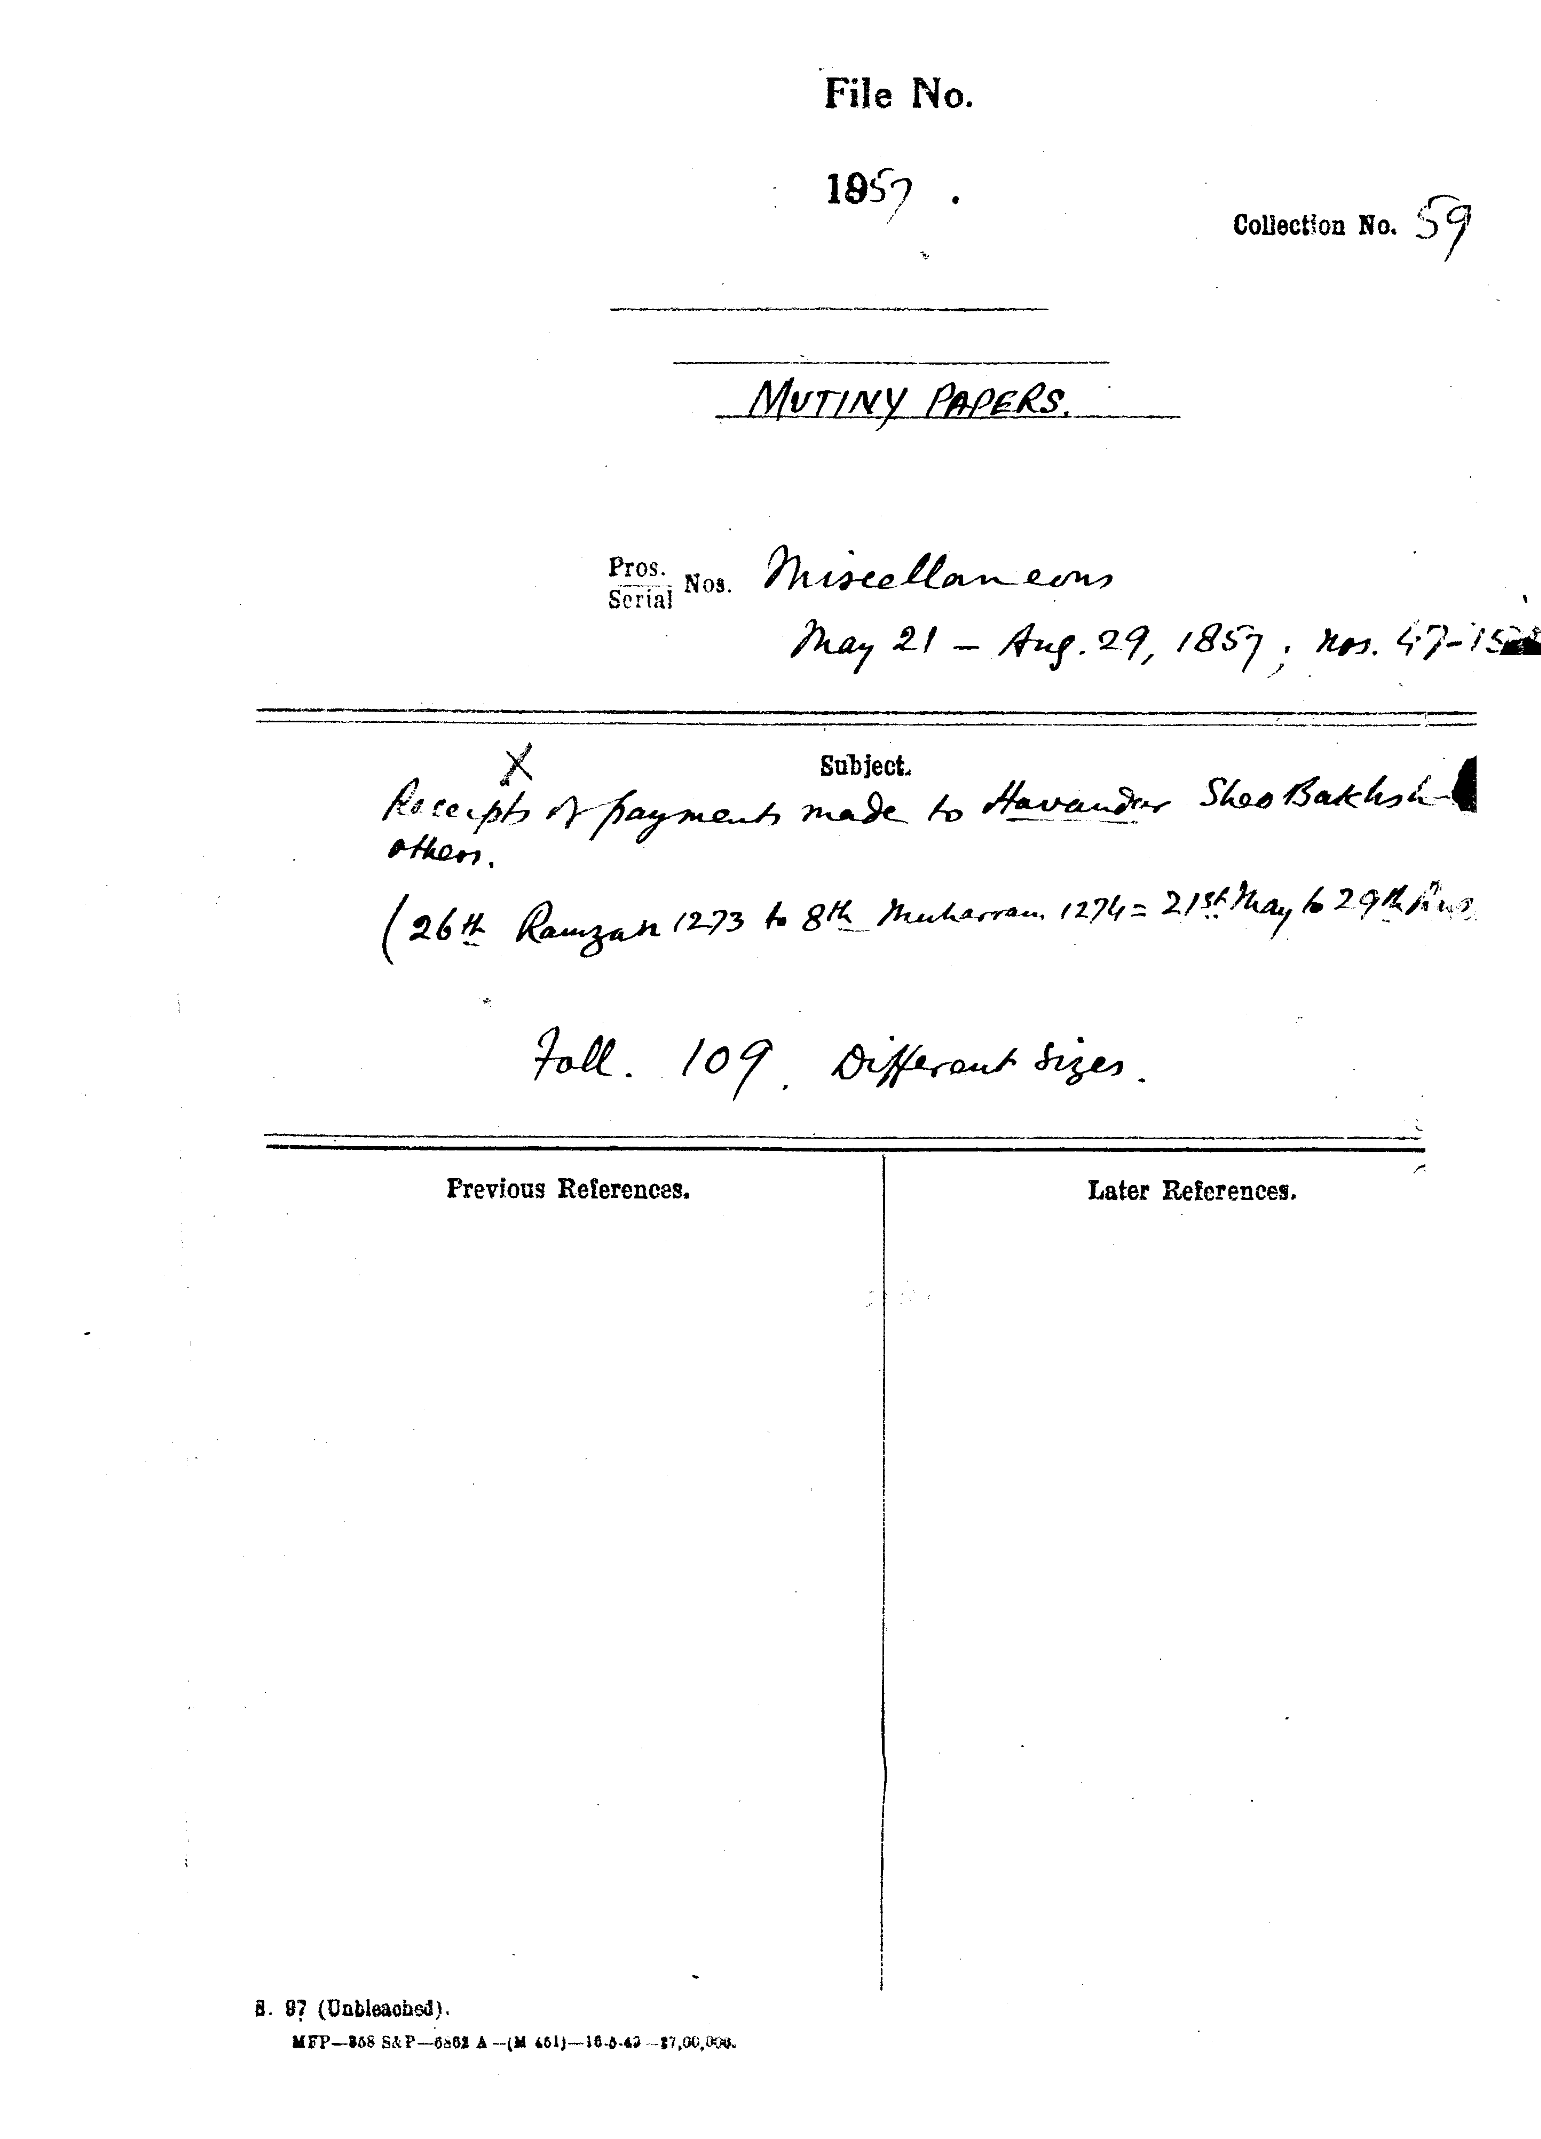 File No.
1857 .
Collection No. 59
MUTINY PAPERS.
Pros.
Serial Nos. Miscellaneous
May 21 – Aug. 29, 1857; Nos. 47-
Subject.
X
Receipts of payments made to Havander Sheo Bakhsh
others.
(26th Ramzan 1273 to 8th Muharram 1274 = 21st May to 29th Aug
Foll. 109. Different sizes.
Previous References.
Later References.
S. 97 (Unbleached).
MFP—358 S&P— A—(M 461)—16-5-42—